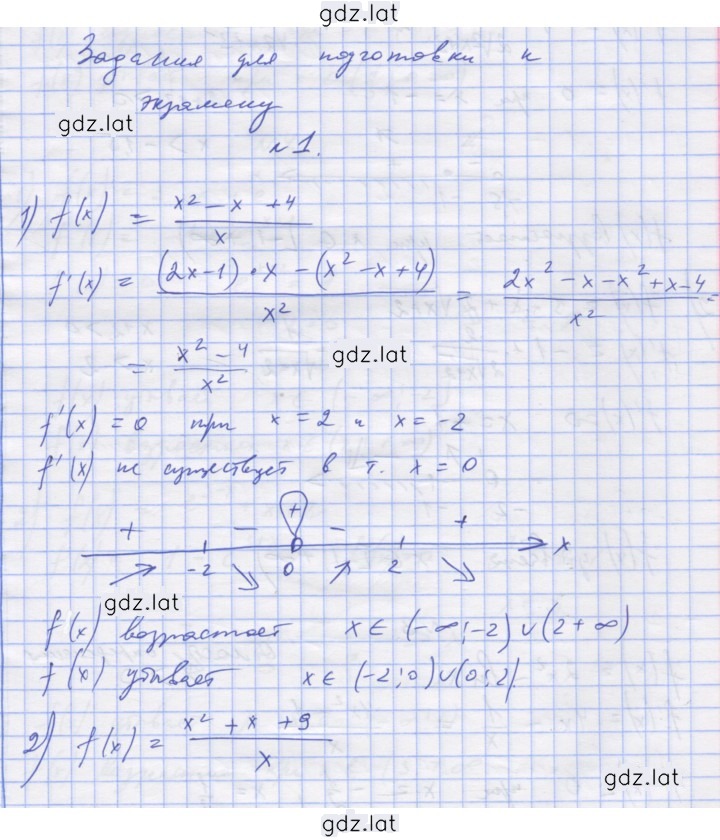 gdz.lat
Задания для подготовки к
экзамену
gdz.lat
№1.
1) f(x) = (x² - x + 4)/x
f'(x) = ((2x-1)·x - (x² - x + 4))/x² = (2x² - x - x² + x - 4)/x² =
= (x² - 4)/x²
gdz.lat
f'(x) = 0 при x = 2 и x = -2
f'(x) не существует в т. x = 0
+ - + - +
-2 0 2 x
gdz.lat
f(x) возрастает x ∈ (-∞; -2) ∪ (2 + ∞)
f(x) убывает x ∈ (-2; 0) ∪ (0; 2)
2) f(x) = (x² + x + 9)/x
gdz.lat
gdz.lat